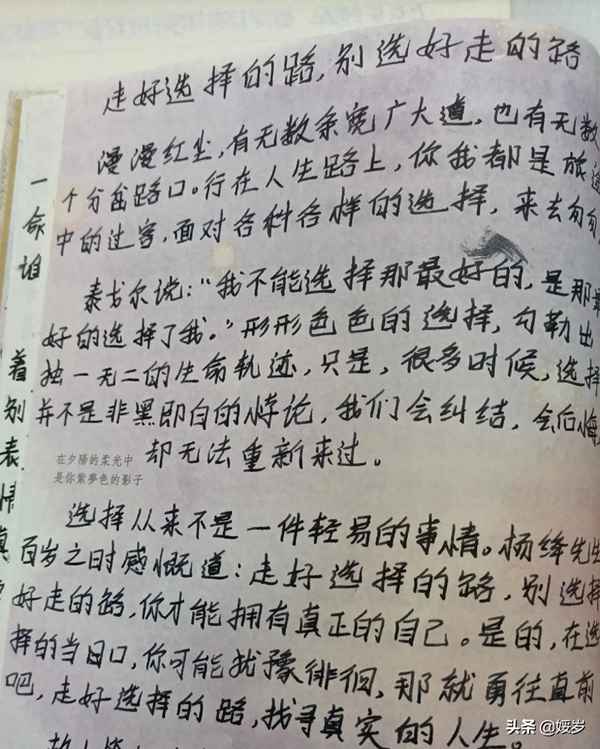 走好选择的路,别选好走的路
漫漫红尘,有无数条宽广大道,也有无数
个分岔路口。行在人生路上,你我都是旅途
中的过客,面对各种各样的选择,来去匆匆,
泰戈尔说:“我不能选择那最好的,是那最
好的选择了我。”形形色色的选择,勾勒出
独一无二的生命轨迹,只是,很多时候,选择
并不是非黑即白的悖论,我们会纠结,会后悔,
却无法重新来过。
在夕陽的柔光中
是你紫夢色的影子
选择从来不是一件轻易的事情。杨绛先生
百岁之时感慨道:走好选择的路,别选择
好走的路,你才能拥有真正的自己。是的,在选
择的当日口,你可能犹豫徘徊,那就勇往直前
吧,走好选择的路,找寻真实的人生
一
命
着
别
表
情
真
头条 @媛岁